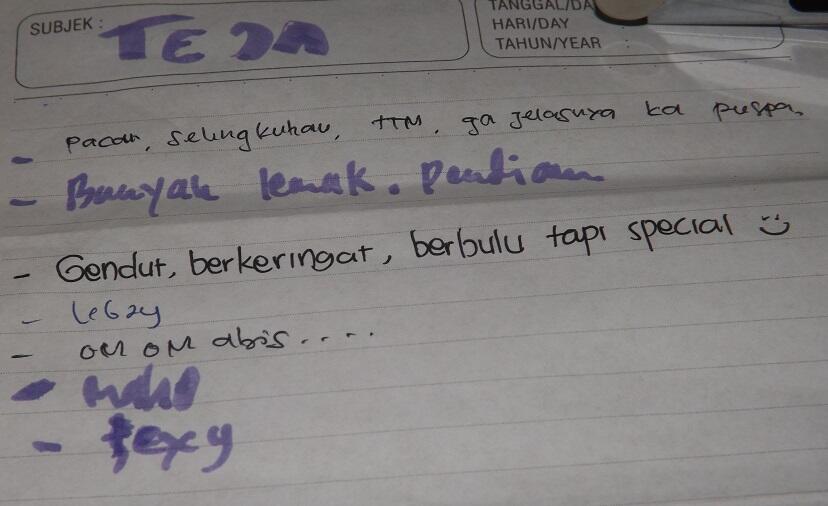 SUBJEK : TEJA
TANGGAL/DA
HARI/DAY
TAHUN/YEAR :
- pacar, selingkuhan, TTM, ga jelasnya ka puspa.
- Banyak lemak. Pendiam
- Gendut, berkeringat, berbulu tapi special
- lebay
- OM OM abis.....
- maho
- sexy